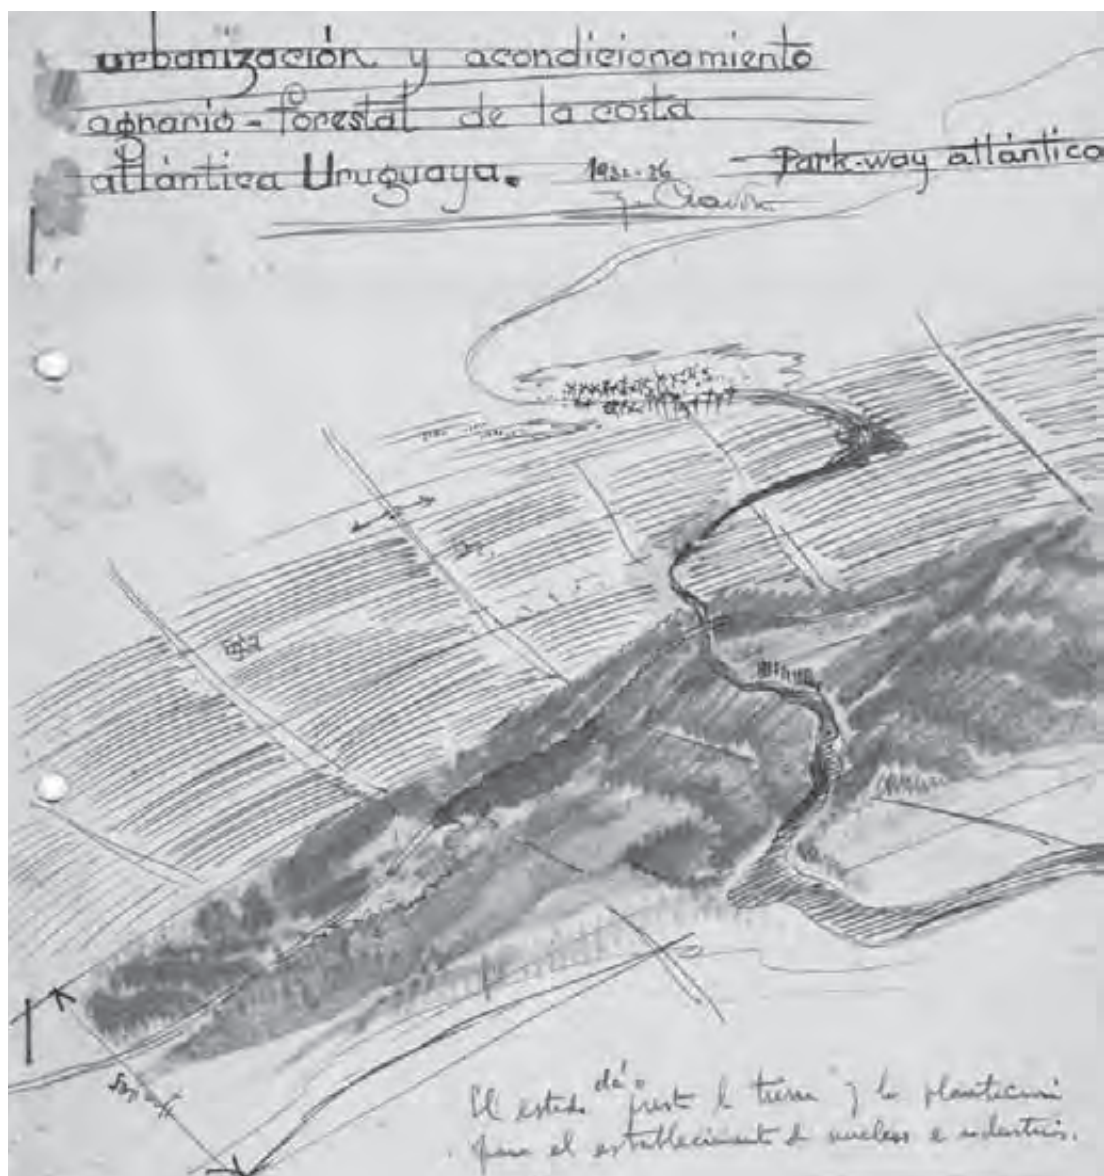 urbanización y acondicionamiento
agrario-forestal de la costa
atlántica Uruguaya.
Park-way atlántico
El estado dá o presta la tierra y la plantación
para el establecimiento de nucleos e industrias.